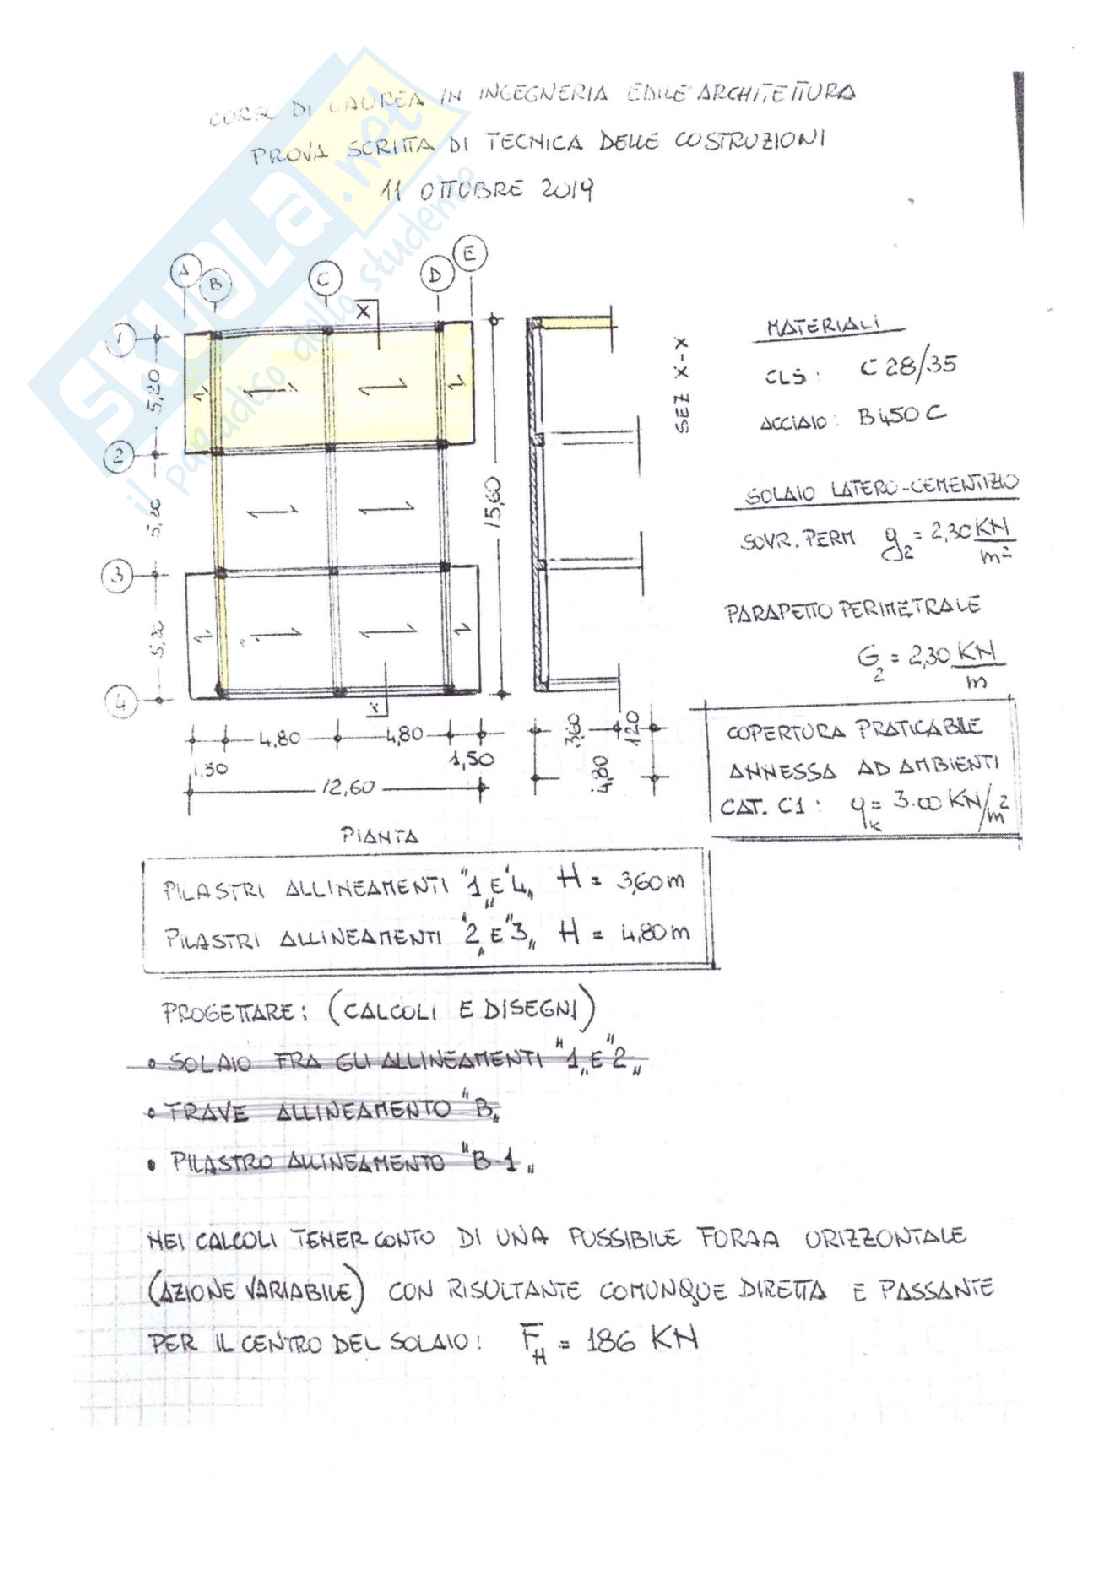 CORSO DI LAUREA IN INGEGNERIA EDILE ARCHITETTURA
PROVA SCRITTA DI TECNICA DELLE COSTRUZIONI
11 OTTOBRE 2019
SKUOLA.net
il paradiso dello studente
A B C D E
X
1
5,20
2
5,20
3
5,20
4
15,60
X
4,80 4,80 1,50
1.50
12,60
PIANTA
SEZ X-X
3.60 1.20
4,80
MATERIALI
CLS : C 28/35
ACCIAIO : B450C
SOLAIO LATERO-CEMENTIZIO
SOVR. PERM g2 = 2,30 KN/m²
PARAPETTO PERIMETRALE
G2 = 2,30 KN/m
COPERTURA PRATICABILE
ANNESSA AD AMBIENTI
CAT. C1 : qk = 3.00 KN/m²
PILASTRI ALLINEAMENTI "1" E "4" H = 3,60 m
PILASTRI ALLINEAMENTI "2" E "3" H = 4,80 m
PROGETTARE: (CALCOLI E DISEGNI)
• SOLAIO FRA GLI ALLINEAMENTI "1" E "2"
• TRAVE ALLINEAMENTO "B"
• PILASTRO ALLINEAMENTO "B-1"
NEI CALCOLI TENER CONTO DI UNA POSSIBILE FORZA ORIZZONTALE
(AZIONE VARIABILE) CON RISULTANTE COMUNQUE DIRETTA E PASSANTE
PER IL CENTRO DEL SOLAIO: FH = 186 KN